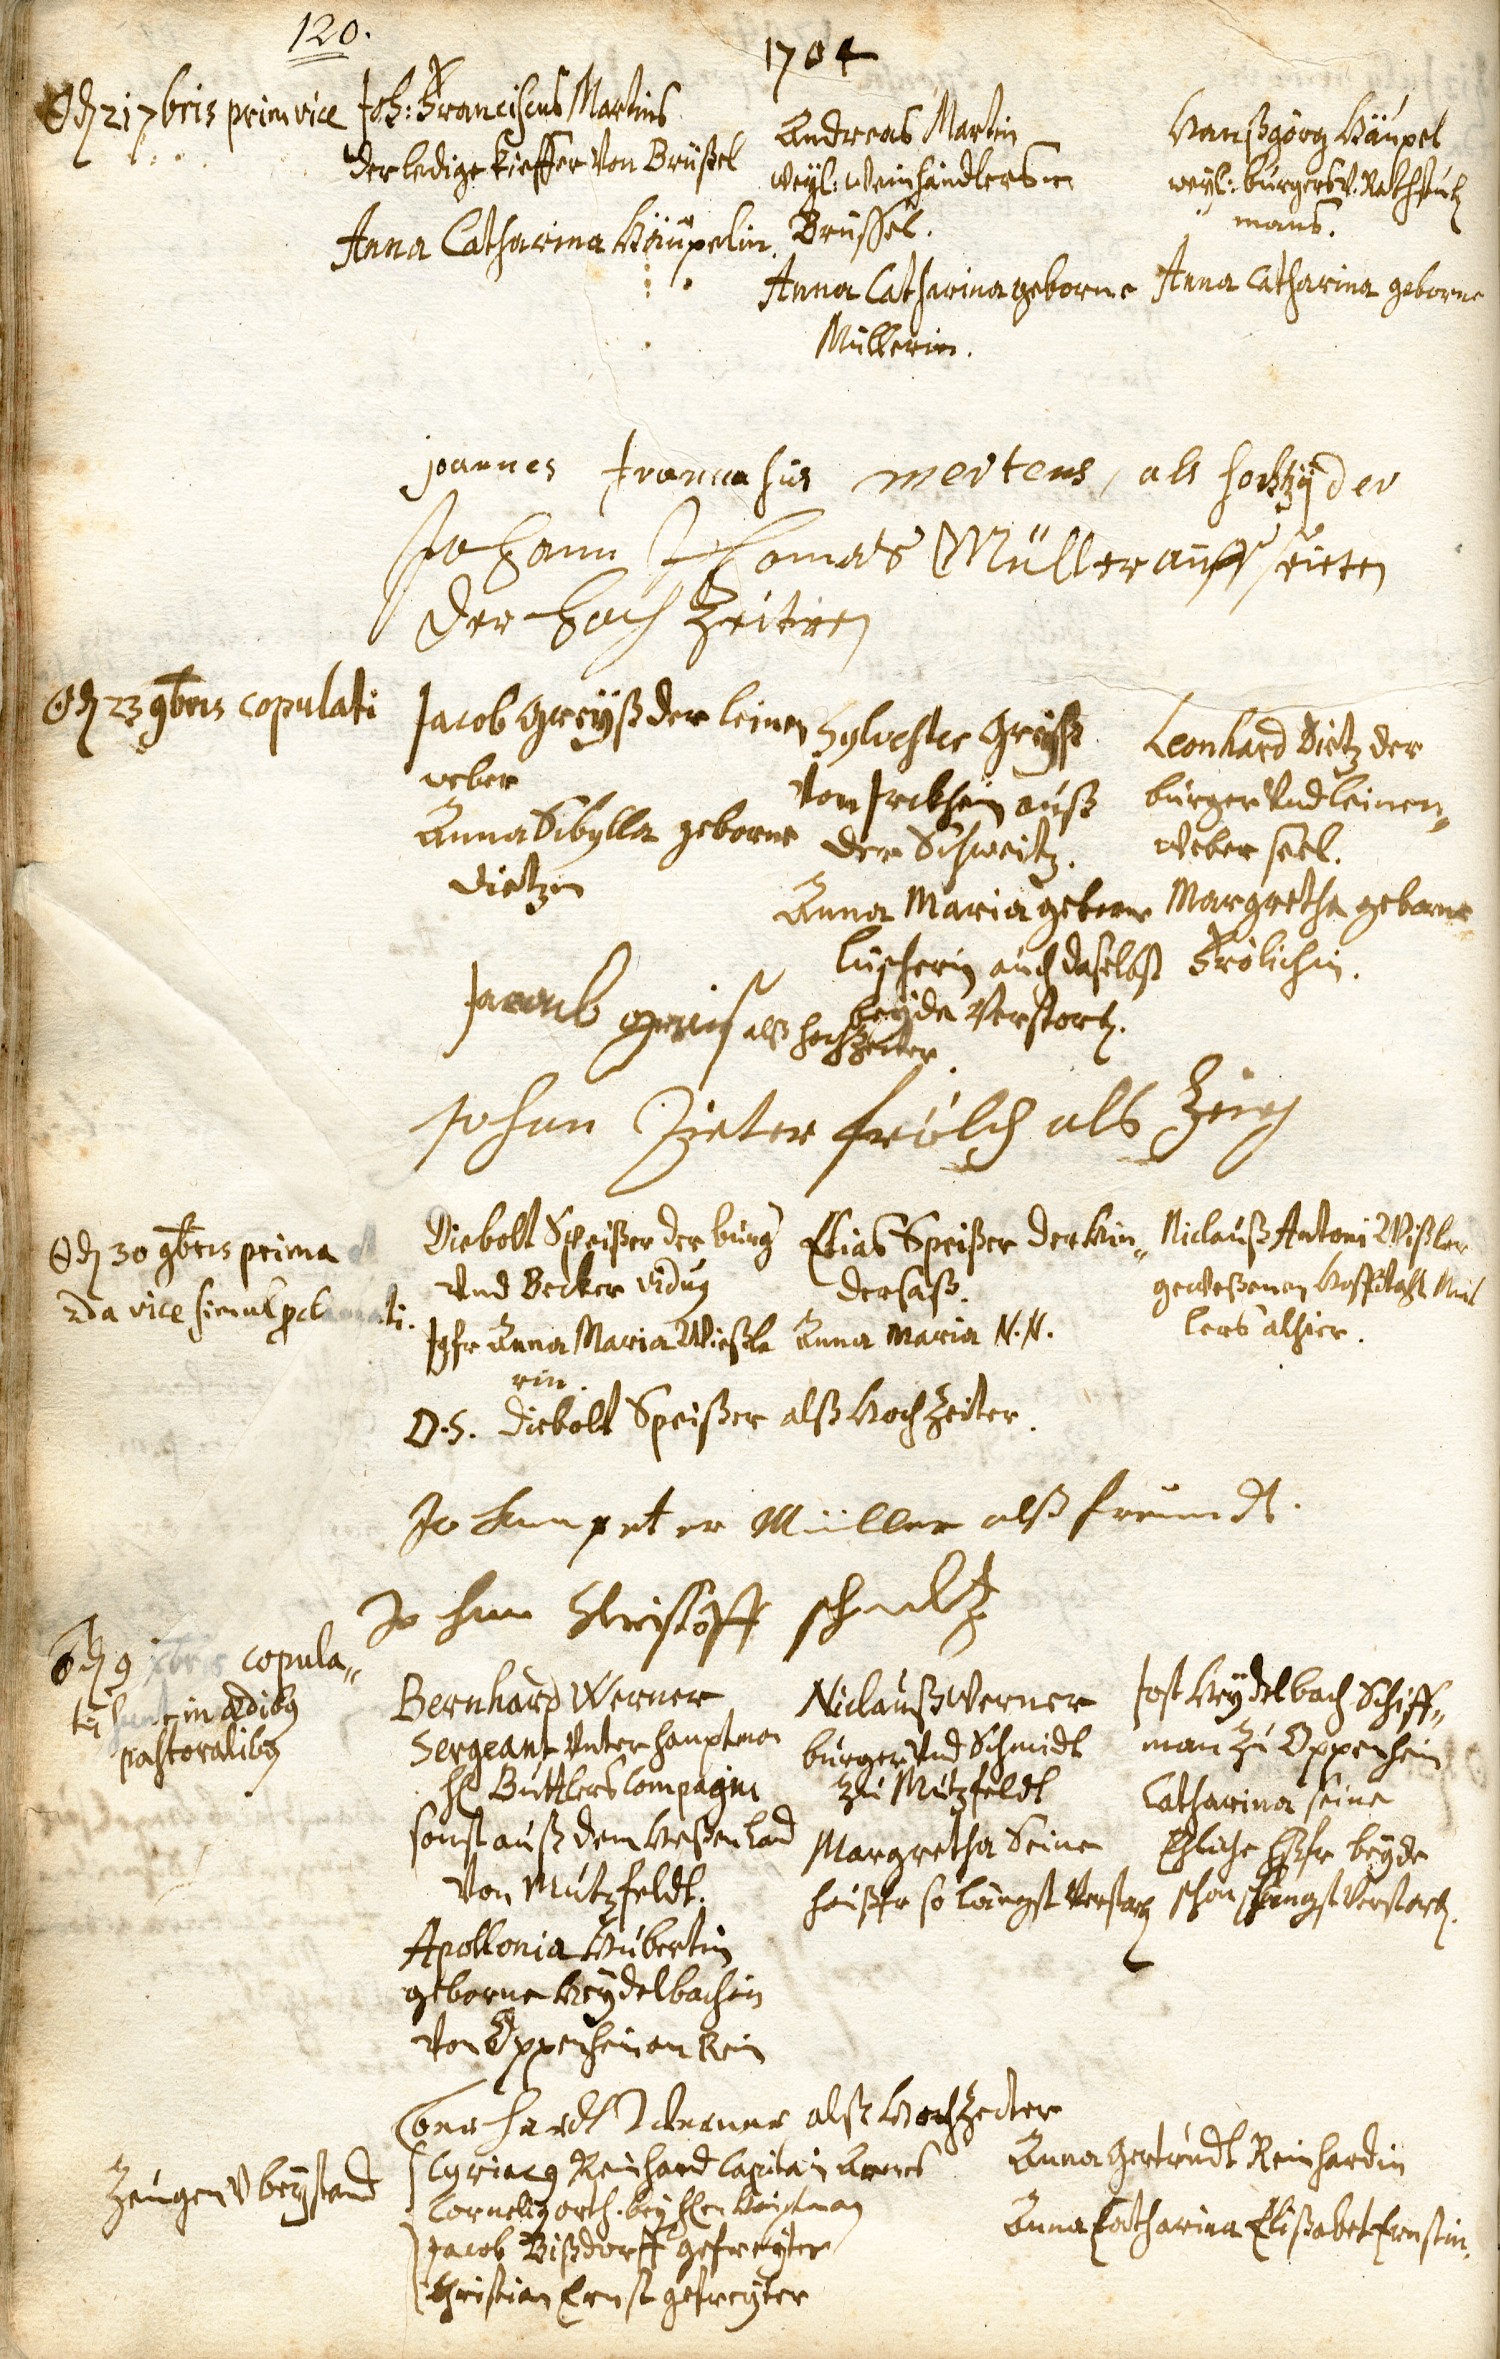 120.
1704
21 7bris prim vice
Joh: Franciscus Martins
der ledige Kieffer von Brüßel
Anna Catharina Häupelin.
Andreas Martin
weyl: Weinhändlers in
Brüssel.
Anna Catharina geborne
Müllerin.
Hanßgörg Häupel
weyl: burgers v.
mans.
Anna Catharina geborne
joannes mertens, als
Johann Thomas Müller auff seiten
der hoch Zeiterin
23 9bris copulati
Jacob Greyß der leinen
weber
Anna Sibylla geborne
Dietzin
Sylvester Greyß
von auß
der Schweitz.
Anna Maria geborne
auch daselbst
beyde Verstorb.
Leonhard Dietz der
burger Und leinen„
weber seel.
Margretha geborne
Frölichin.
Jacob greis alß hochZeiter
Johan Dieter frölich als Zeug
30 9bris prima
2da vice simul
Diebolt Speißer der burg
Und Becker viduus
Jgfr Anna Maria Wißle
rin.
Elias Speißer der Hin„
dersaß.
Anna Maria N.N.
Niclauß Antoni Wißler
geweßenen Hospitahl Mül
lers alhier.
D.S. Diebolt Speißer alß HochZeiter.
Johan peter Müller alß freundt.
Johan Christoff
9 copula„
in ædibus
pastoralibus
Bernhard Werner
Sergeant Unter Hauptman
H. Buttlers Compagni
sonst auß dem Heßenland
Von Mützfeldt.
Apollonia Hubertin
geborne Heydelbachin
Von Oppenheim am Rein
Niclauß Werner
burger Und Schmidt
Zu Mützfeldt
Margretha Seine
haußfr so längst Verstorb
Jost Heydelbach Schiff„
man Zu Oppenheim
Catharina seine
Ehliche Hßfr beyde
schon längst Verstorb.
Bernhardt Werner alß HochZeiter
Zeugen v beystand
Cyriacus Reinhard Capitain
Cornelius orth. bey
Jacob Bißdorff gefreyter
Christian Ernst gefreyter
Anna Gertrudt Reinhardin
Anna Catharina Elisabet Ernstin.